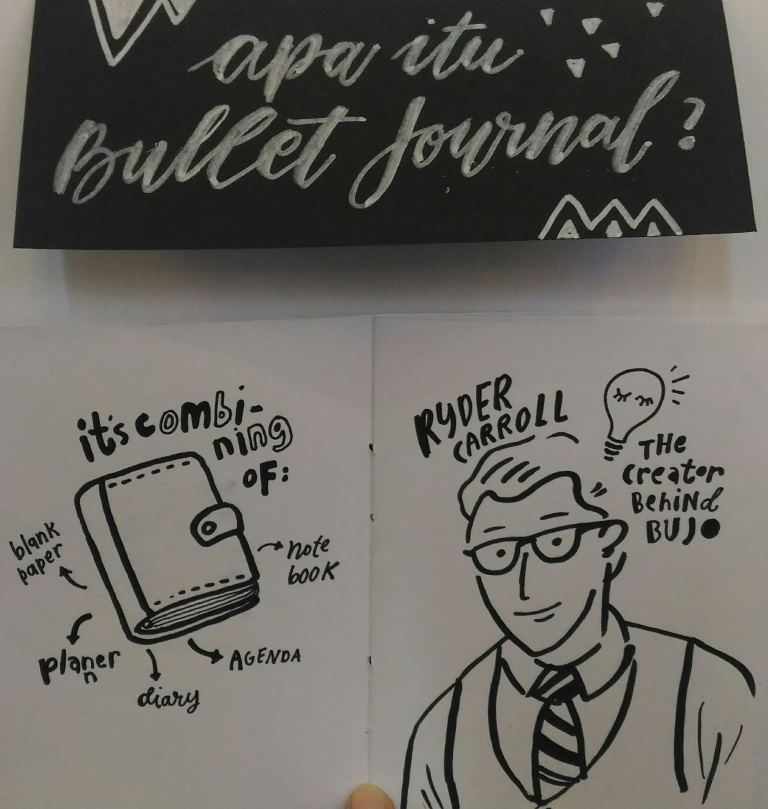 apa itu
Bullet Journal?
it's combi-
ning
OF:
blank
paper
note
book
planer
n
diary
AGENDA
RYDER
CARROLL
THE
creator
BehiNd
BUJO